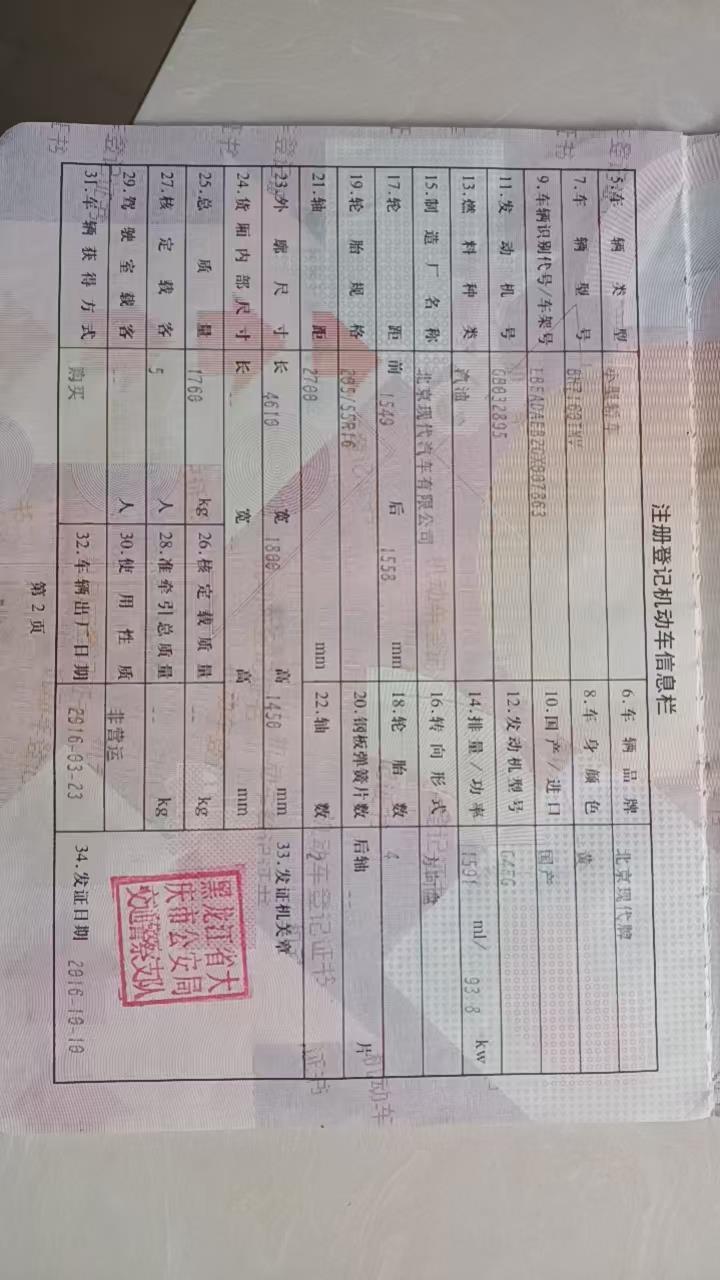 注册登记机动车信息栏
5.车辆类型 小型轿车 6.车辆品牌 北京现代牌
7.车辆型号 8.车身颜色 黄
9.车辆识别代号/车架号 10.国产/进口 国产
11.发动机号 GB032895 12.发动机型号 G4FG
13.燃料种类 汽油 14.排量/功率 1591 ml/ 93.8 kw
15.制造厂名称 北京现代汽车有限公司 16.转向形式 方向盘
17.轮距 前 1549 后 1558 mm 18.轮胎数 4
19.轮胎规格 205/55R16 20.钢板弹簧片数 后轴 -- 片
21.轴距 2700 mm 22.轴数 2
23.外廓尺寸 长 4610 宽 1800 高 1450 mm 33.发证机关章
24.货厢内部尺寸 长 -- 宽 -- 高 -- mm
25.总质量 1760 kg 26.核定载质量 -- kg
27.核定载客 5 人 28.准牵引总质量 -- kg
29.驾驶室载客 -- 人 30.使用性质 非营运
31.车辆获得方式 购买 32.车辆出厂日期 2016-03-23 34.发证日期 2016-10-10
黑龙江省大
庆市公安局
交通警察支队
第2页